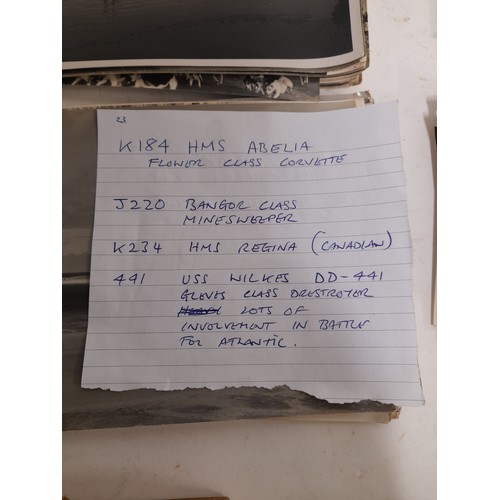 23
K184 HMS ABELIA
FLOWER CLASS CORVETTE
J220 BANGOR CLASS
MINESWEEPER
K234 HMS REGINA (CANADIAN)
441 USS WILKES DD-441
GLEVES CLASS DRESTROYER
LOTS OF
INVOLVEMENT IN BATTLE
FOR ATLANTIC.